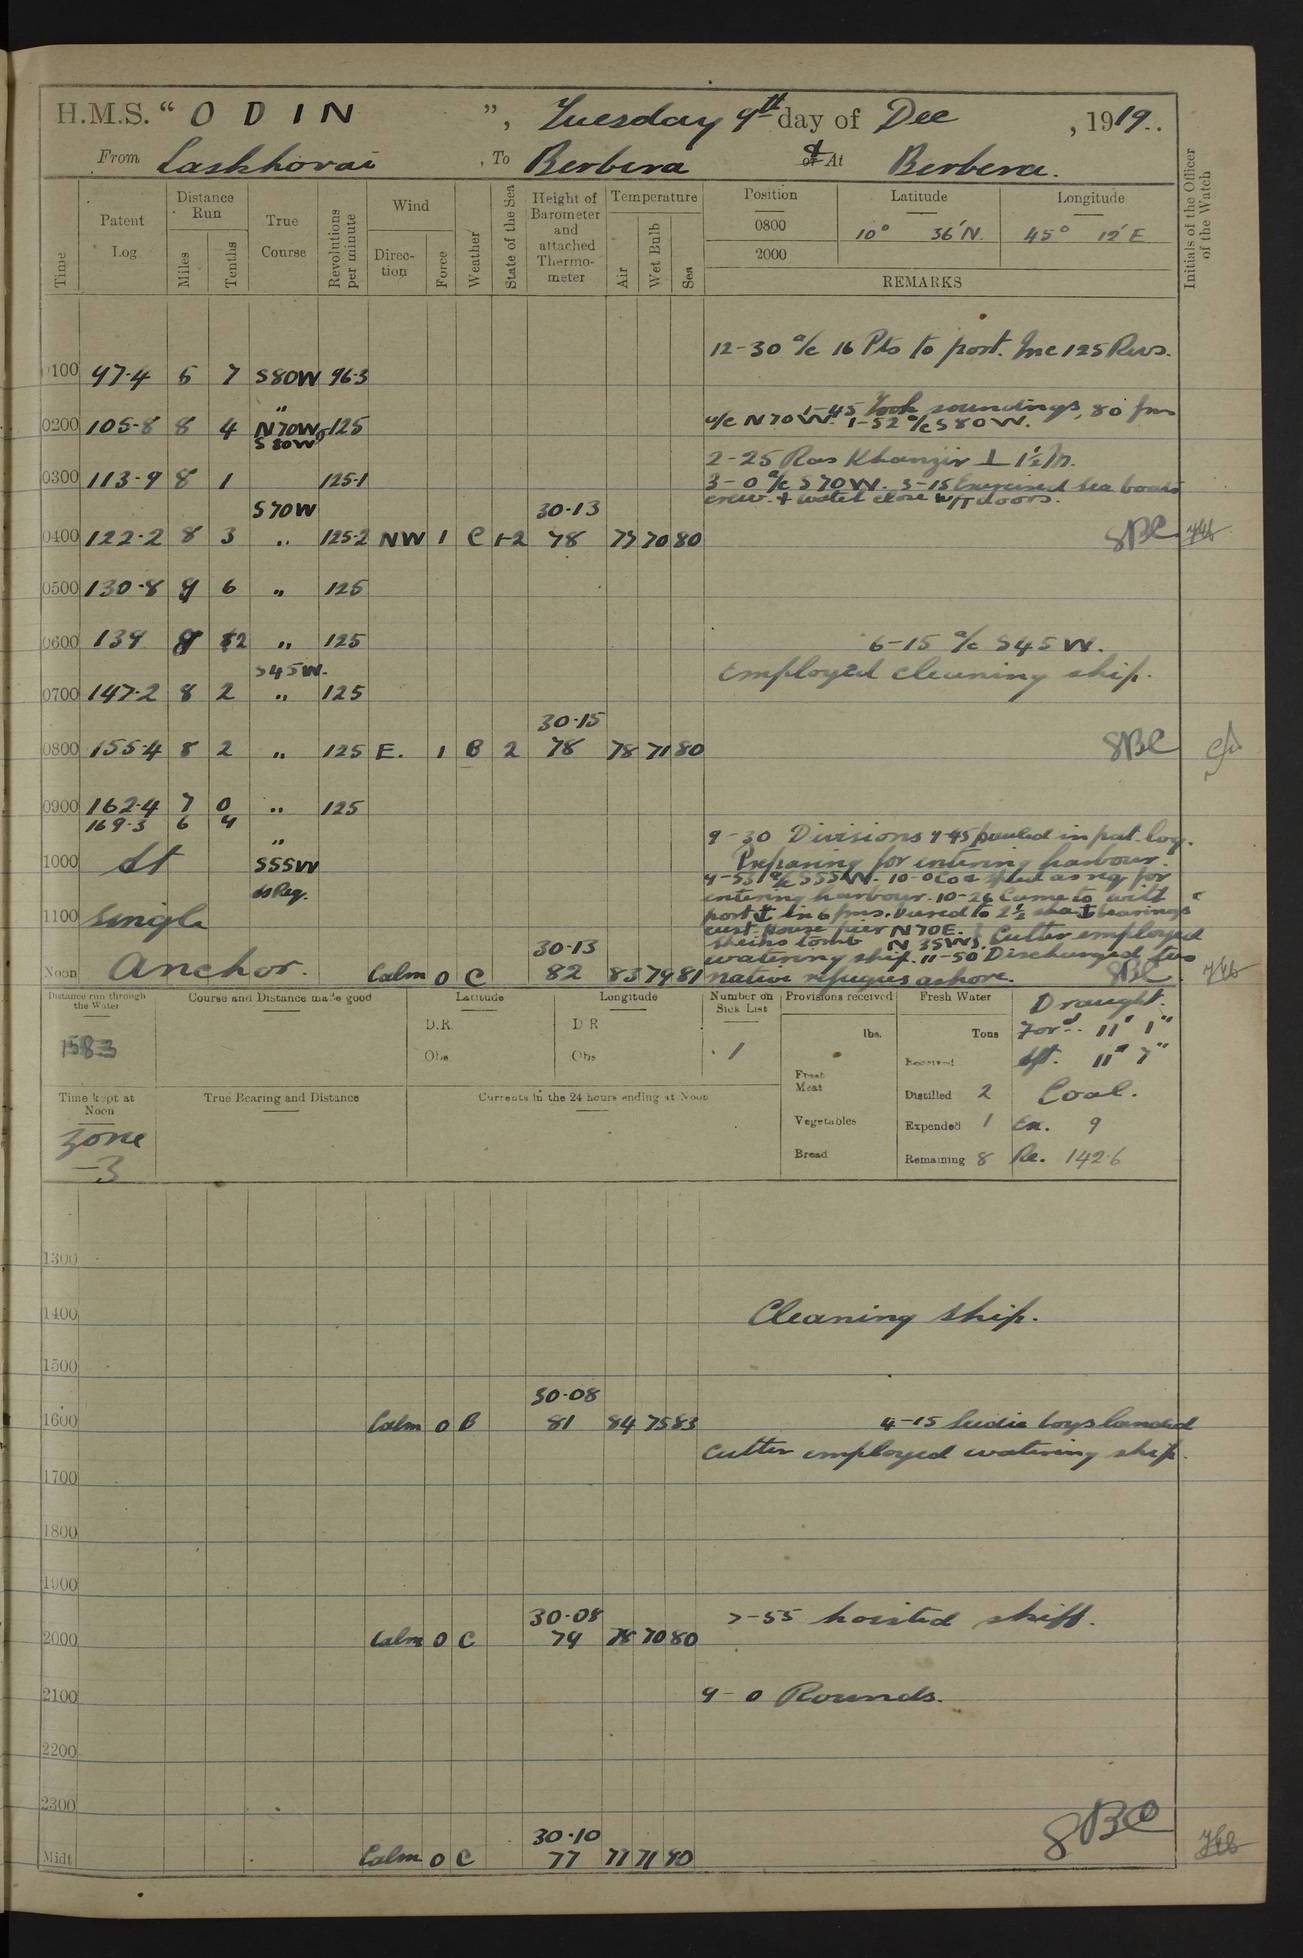 H.M.S. “ O D I N ”, Tuesday 9th day of Dec , 1919.
From Laskhorai , To Berbera & or At Berbera.
Time
Patent Log
Distance Run
Miles
Tenths
True Course
Revolutions per minute
Wind
Direction
Force
Weather
State of the Sea
Height of Barometer and attached Thermometer
Temperature
Air
Wet Bulb
Sea
Position
Latitude
Longitude
0800 10° 36′ N. 45° 12′ E
2000
REMARKS
Initials of the Officer of the Watch
12-30 a/c 16 Pts to port. Inc 125 Revs.
0100 97·4 5 7 S80W 96·3
1-45 Took soundings, 80 fms
„
0200 105·8 8 4 N70W 125 a/c N70W. 1-52 a/c S80W.
S80W
2-25 Ras Khanzir ⊥ 1½ M.
0300 113·9 8 1 125·1 3-0 a/c S70W. 3-15 Exercised sea boats
crew. & water close W/T doors.
S70W 30·13
0400 122·2 8 3 „ 125·2 NW 1 C 1-2 78 77 70 80 8BC
0500 130·8 8 6 „ 125
0600 139 8 2 „ 125 6-15 a/c S45W.
S45W. Employed cleaning ship.
0700 147·2 8 2 „ 125
30·15
0800 155·4 8 2 „ 125 E. 1 B 2 78 78 71 80 8BC
0900 162·4 7 0 „ 125
169·3 6 9
„ 9-30 Divisions 9-45 hauled in pat. log.
1000 At S55W Preparing for entering harbour.
9-53 a/c S55W. 10-0 Co & sped as req for
as Req. entering harbour. 10-26 Came to with
1100 single port ⚓ in 6 fms. Veered to 2½ sha ⚓ bearings
Cust. House pier N70E. } Cutter employed
Sheiks tomb N 35W
30·13 watering ship. 11-50 Discharged two
Noon Anchor. Calm 0 C 82 83 79 81 native refugies ashore. 8BC
Distance run through the Water
Course and Distance made good
Latitude
Longitude
Number on Sick List
Provisions received
Fresh Water
Draught.
D.R.
D R
lbs.
Tons
Ford. 11′ 1″
1583
Obs
Obs
1
Received
Aft. 11′ 7″
Fresh Meat
Time kept at Noon
True Bearing and Distance
Currents in the 24 hours ending at Noon
Distilled 2 Coal.
zone
Vegetables
Expended 1 Ex. 9
-3
Bread
Remaining 8 Re. 142·6
1300
1400 Cleaning ship.
1500
30·08
1600 Calm 0 B 81 84 75 83 4-15 Sudie boys landed
Cutter employed watering ship.
1700
1800
1900
30·08 7-55 hoisted skiff.
2000 Calm 0 C 79 78 70 80
2100 9-0 Rounds.
2200
2300
30·10 8BC
Midt. Calm 0 C 77 77 71 80